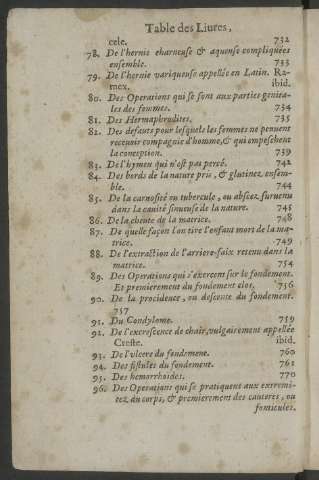 Table des Liures,
cele. 732
78. De l'hernie charneuse & aqueuse compliquées
ensemble. 733
79. De l'hernie variqueuse appellée en Latin. Ra-
mex. ibid.
80. Des Operations qui se font aux parties genita-
les des femmes. 734
81. Des Hermaphrodites. 735
82. Des defauts pour lesquels les femmes ne peuuent
receuoir compagnie d'homme, & qui empeschent
la conception. 739
83. De l'hymen qui n'est pas percé. 742
84. Des bords de la nature pris, & glutinez ensem-
ble. 744
85. De la carnosité ou tubercule, ou abscez suruenu
dans la cauité sinueuse de la nature. 745
86. De la cheute de la matrice. 748
87. De quelle façon l'on tire l'enfant mort de la ma-
trice. 749
88. De l'extraction de l'arriere-faix retenu dans la
matrice. 754
89. Des Operations qui s'exercent sur le fondement.
Et premierement du fondement clos. 756
90. De la procidence, ou descente du fondement.
757
91. Du Condylome. 759
92. De l'excrescence de chair, vulgairement appellée
Creste. ibid.
93. De l'vlcere du fondement. 760
94. Des fistules du fondement. 761
95. Des hemorrhoides. 770
96. Des Operations qui se pratiquent aux extremi-
tez du corps, & premierement des cauteres, ou
fonticules.